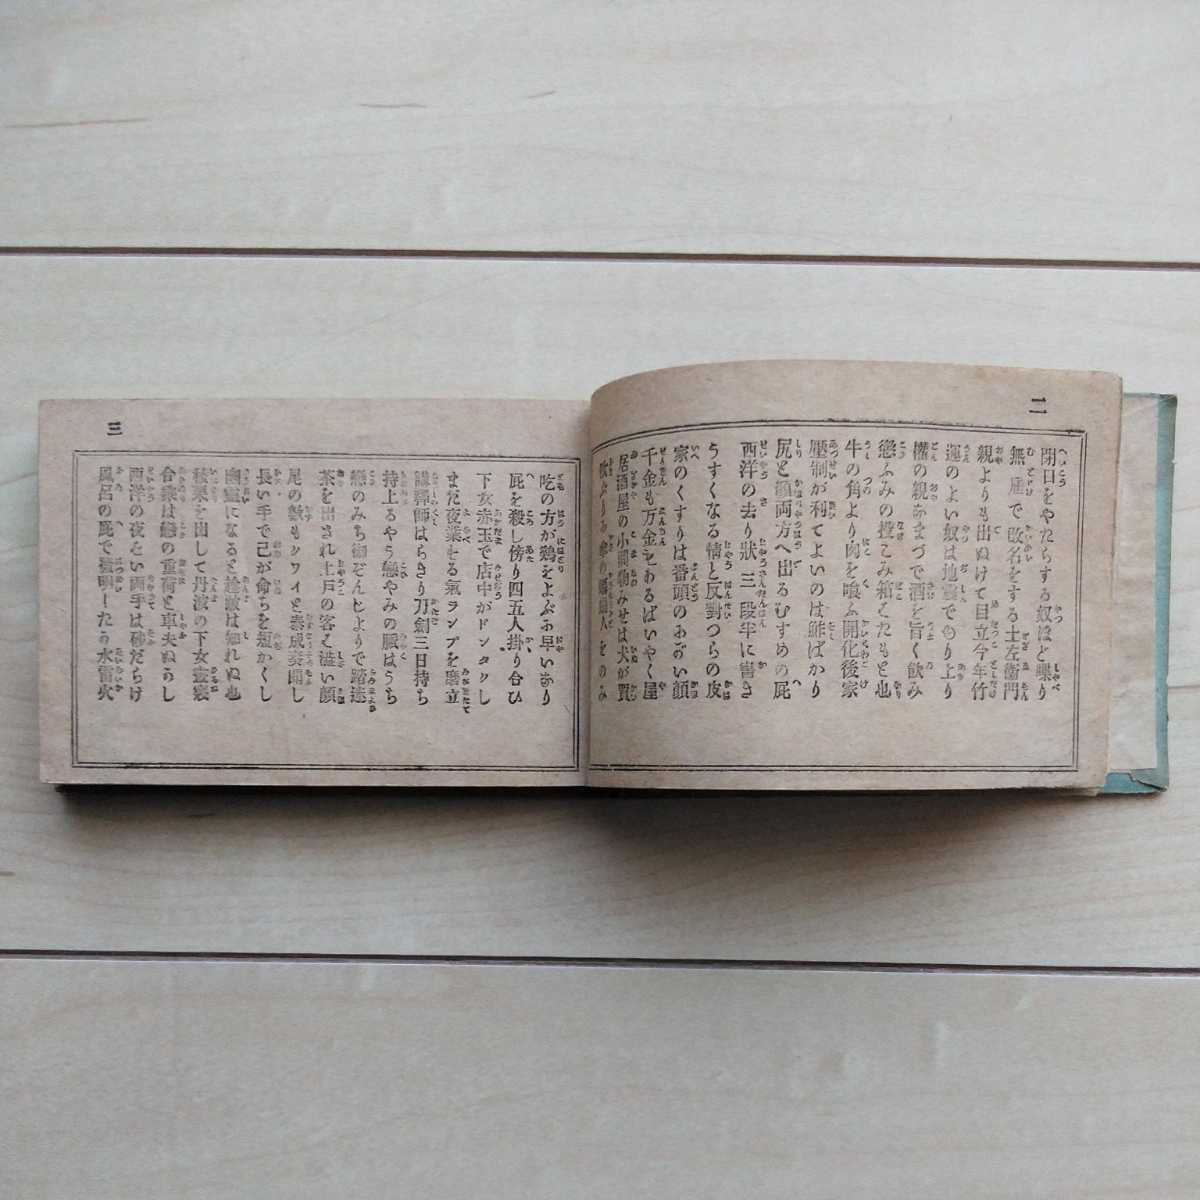 二
閉口をやたらする奴ほど喋り
無届で改名をする土左衛門
親よりも出ぬけて目立今年竹
運のよい奴は地震での り上り
権の親 まづで酒を旨く飲み
慾ふみの投こみ箱 たもと也
牛の角より肉を喰ふ開化後家
壓制が利てよいのは鮓ばかり
尻と顔両方へ出るむすめの屁
西洋の去り狀三段半に書き
うすくなる情と反對つらの皮
家のくすりは番頭のおごい顔
千金も万金もあるばいやく屋
居酒屋の小間物みせは犬が買
人をのみ
三
吃の方が鶏をよぶ 早い り
屁を殺し傍り四五人掛り合ひ
下女赤玉で店中がドンタクし
まだ夜業せる氣ランプを磨立
講釋師はらきり刀創三日持ち
持上るやう戀やみの脈はうち
戀のみち御ぞんじよりで踏迷
茶を出され上戸の客 澁い顔
尾の數もシワイと泰成妾 し
長い手で己が命ちを短かくし
幽靈になると 敵は知れぬ也
を出して丹波の下女 家
合乘は戀の重荷と車夫 し
西洋の夜 い両手は砂だらけ
風呂の屁で發明したる水雷火